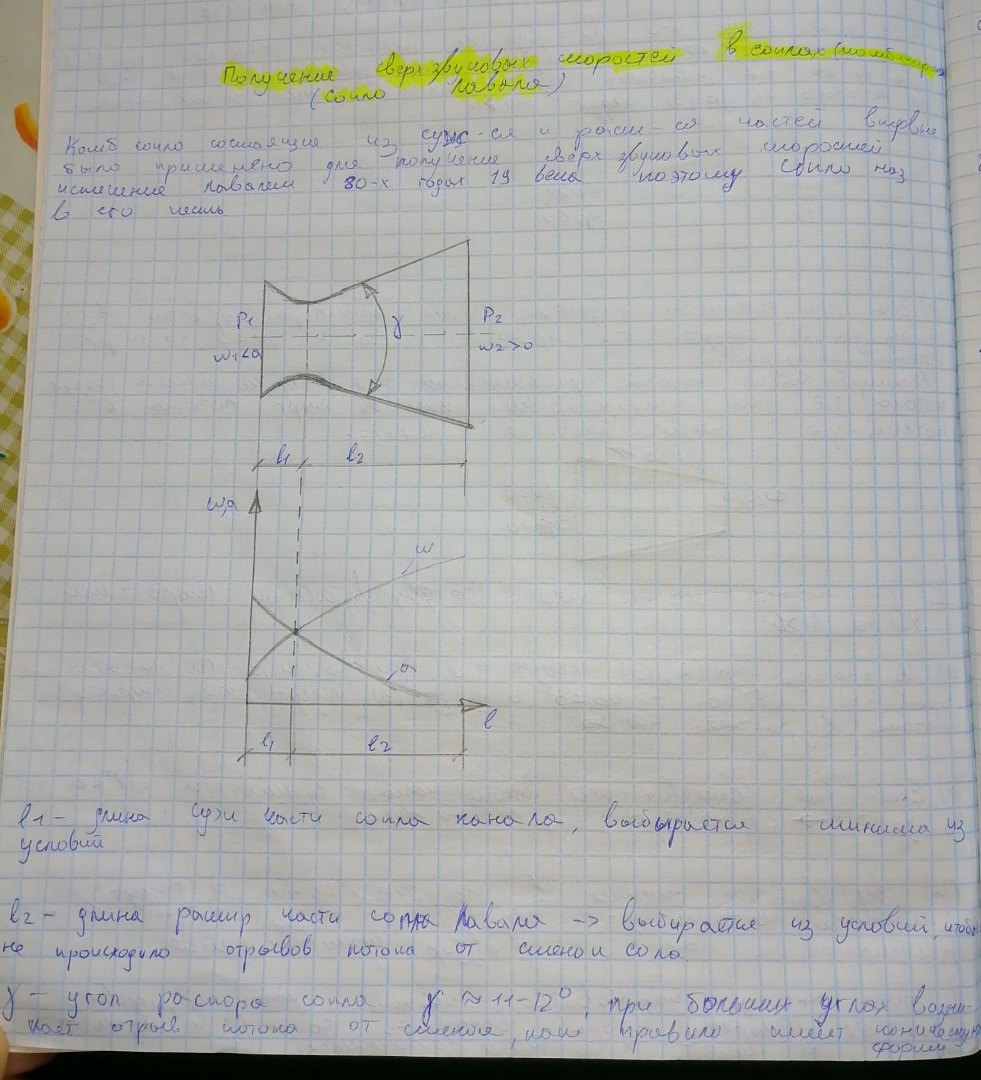 Получение сверхзвуковых скоростей в соплах (комб
(сопло Лаваля)
Комб сопло состоящие из суж-ся и расш-ся частей впервые
было применено для получение сверхзвуковых скоростей
истечение Лавалем 80-х годах 19 века поэтому сопло наз
в его честь
P1
γ
P2
w1<a
w2>0
l1
l2
w,a
w
a
l
l1
l2
l1 - длина суж части сопла канала, выбырается миним из
условий
l2 - длина расшир части сопла Лаваля -> выбирается из условий, чтобы
не происходило отрывов потока от стенок сопа.
γ - угол распора сопла γ ≈ 11-12°, при больших углах возни-
кает отрыв потока от стенок, как правило имеет коническую
форму